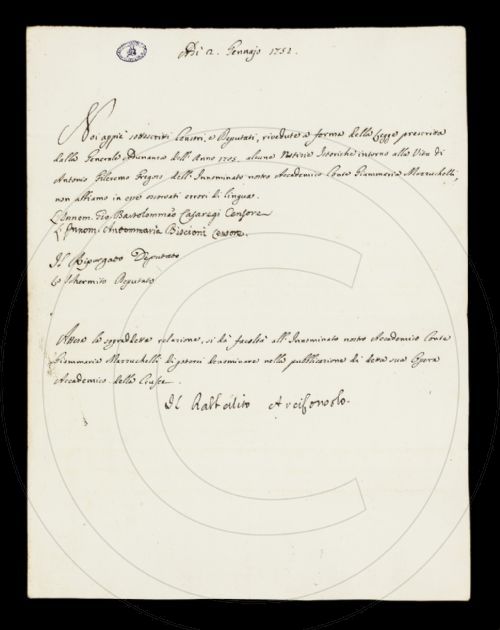 Adì 2. Gennajo 1752.
Noi appiè sottoscritti Censori, e Deputati, riveduta a forma della Legge prescritta
dalla Generale Adunanza dell'Anno 1705. alcune Notizie Istoriche intorno alla Vita di
Antonio Fileremo Fregoso dell'Innominato nostro Accademico Conte Giammaria Mazzuchelli,
non abbiamo in esse osservati errori di lingua.
L'Innom. Gio. Bartolommeo Casaregi Censore
L'Innom. Antommaria Biscioni Censore.
Il Ripurgato Deputato
Lo Schermito Deputato
Attesa la sopraddetta relazione, si dà facoltà all'Innominato nostro Accademico Conte
Giommaria Mazzuchelli di potersi denominare nella pubblicazione di detta sua Opera
Accademico della Crusca.
Il Arciconsolo.